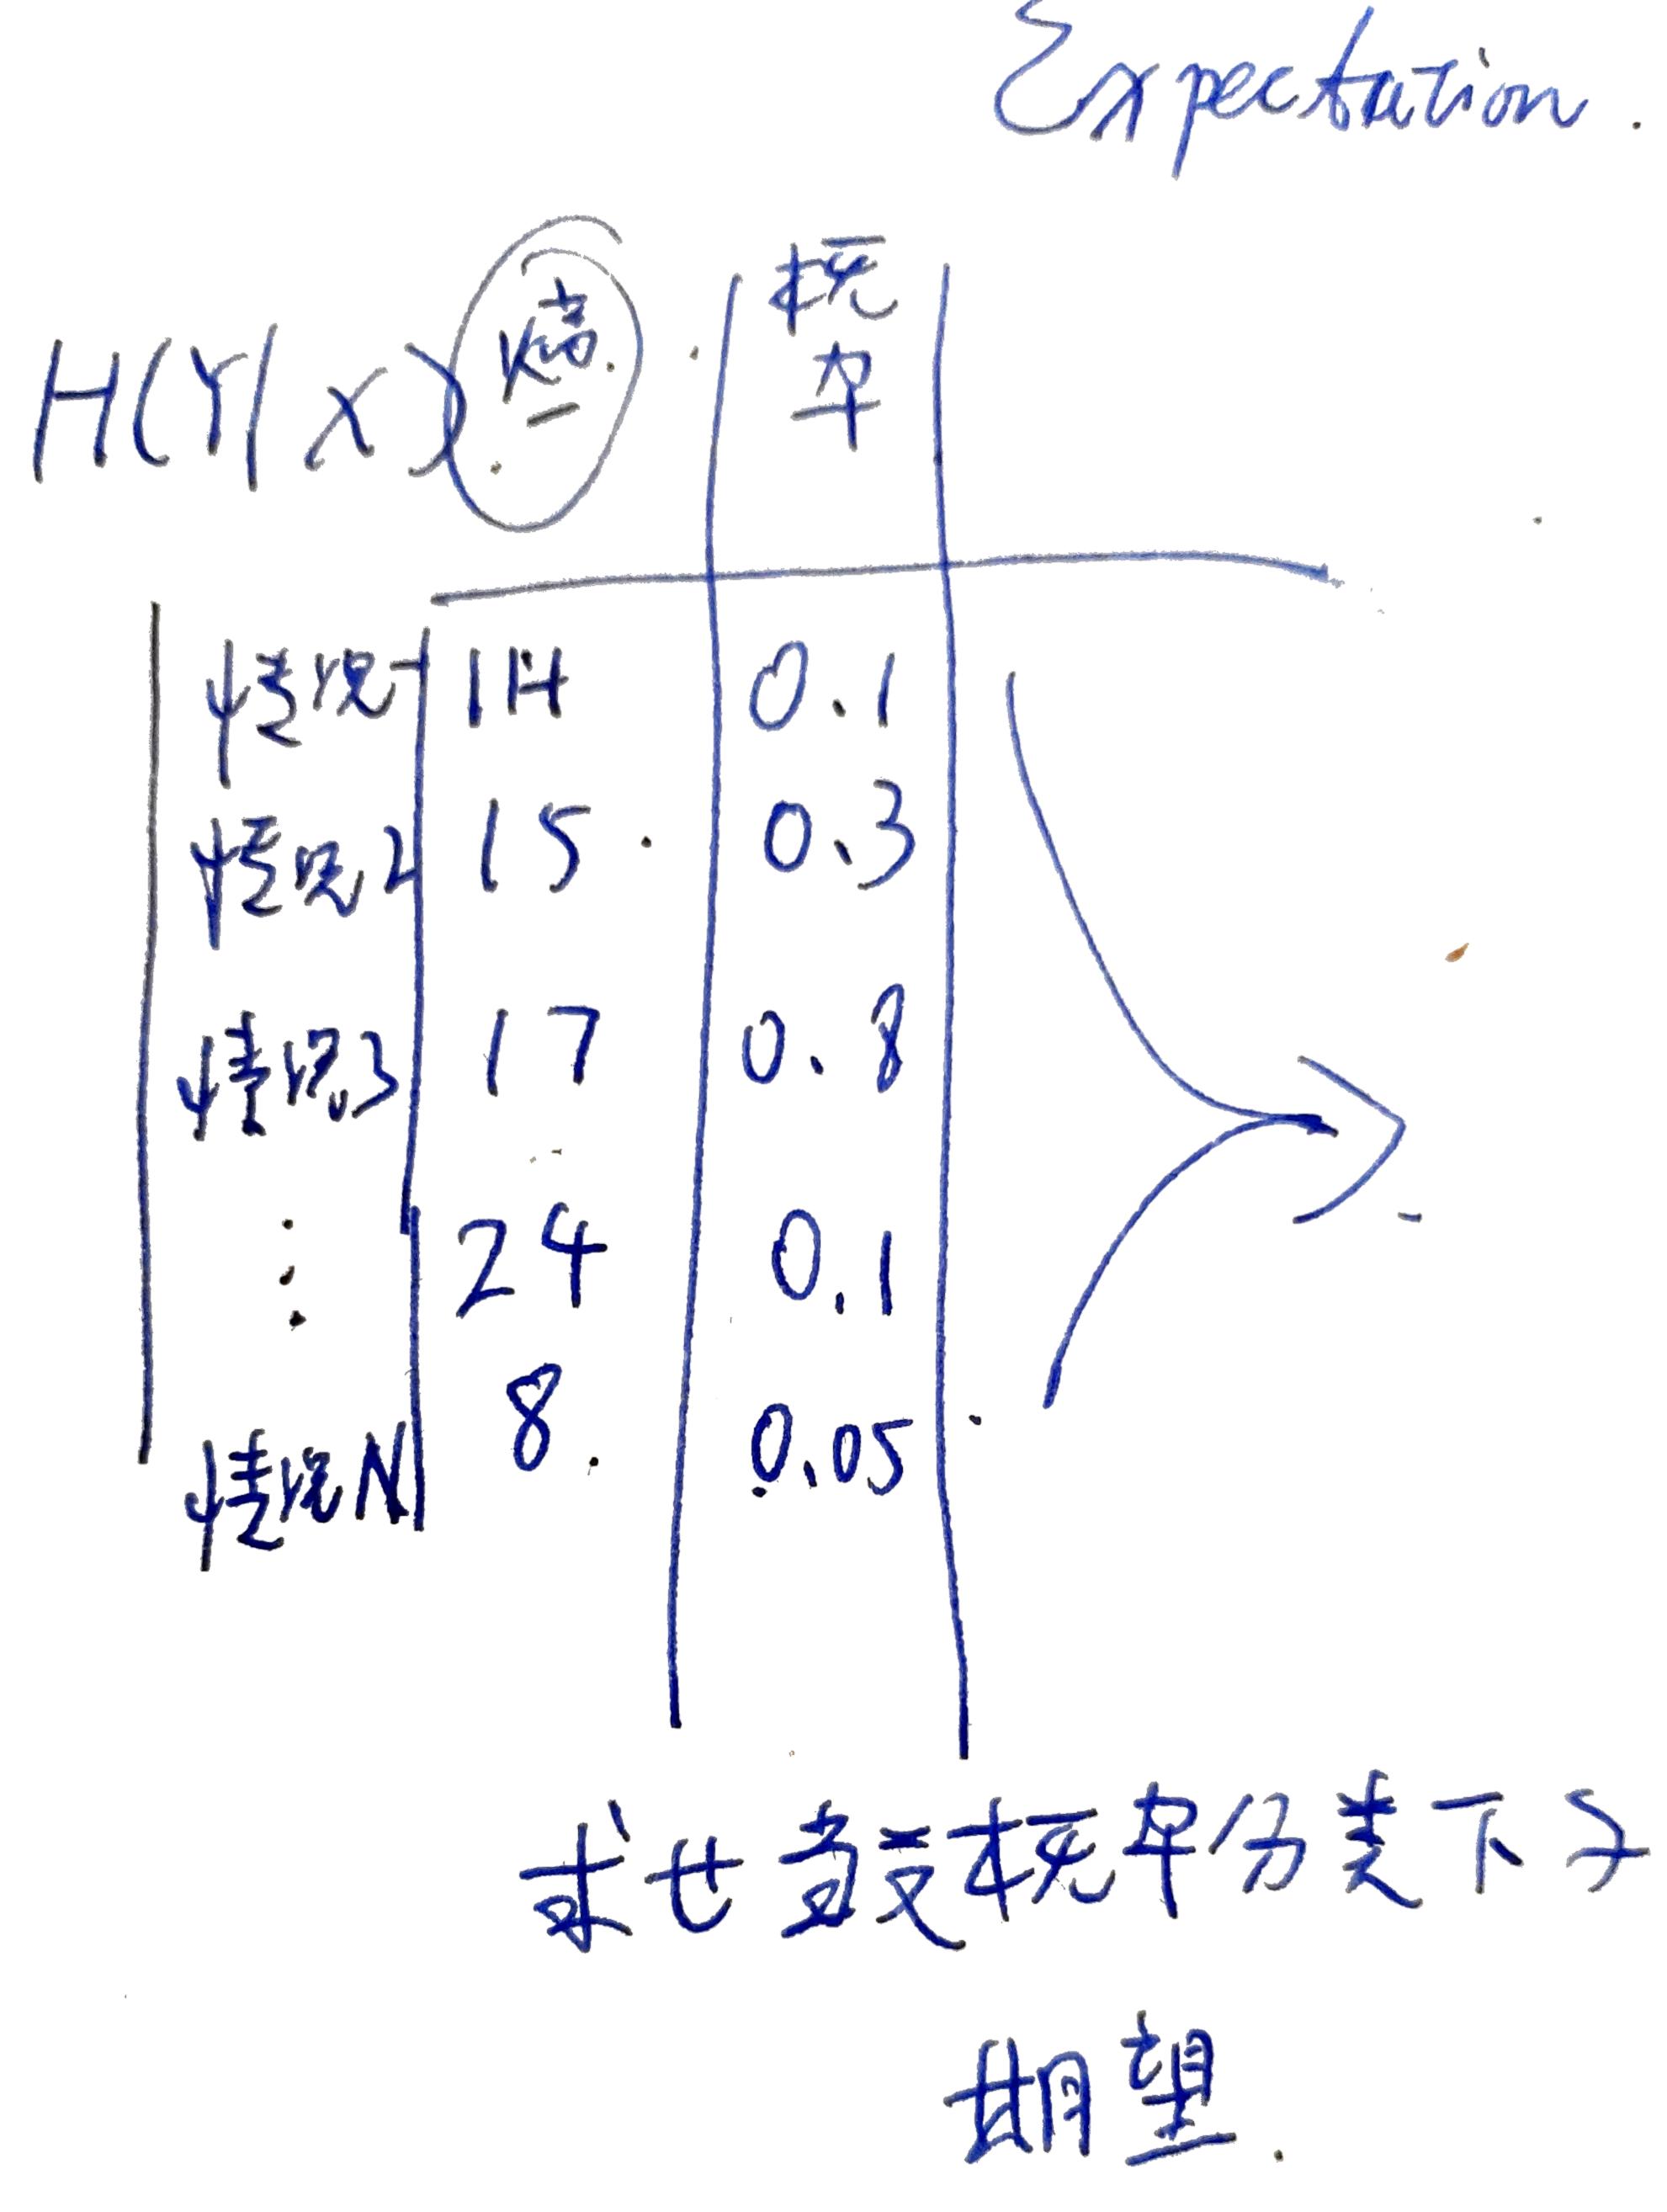 Expectation.
H(Y|X) 熵. 概率
情况1 14 0.1
情况2 15 0.3
情况3 17 0.8
⋮ 24 0.1
情况N 8. 0.05
求世 概率分类下
期望.